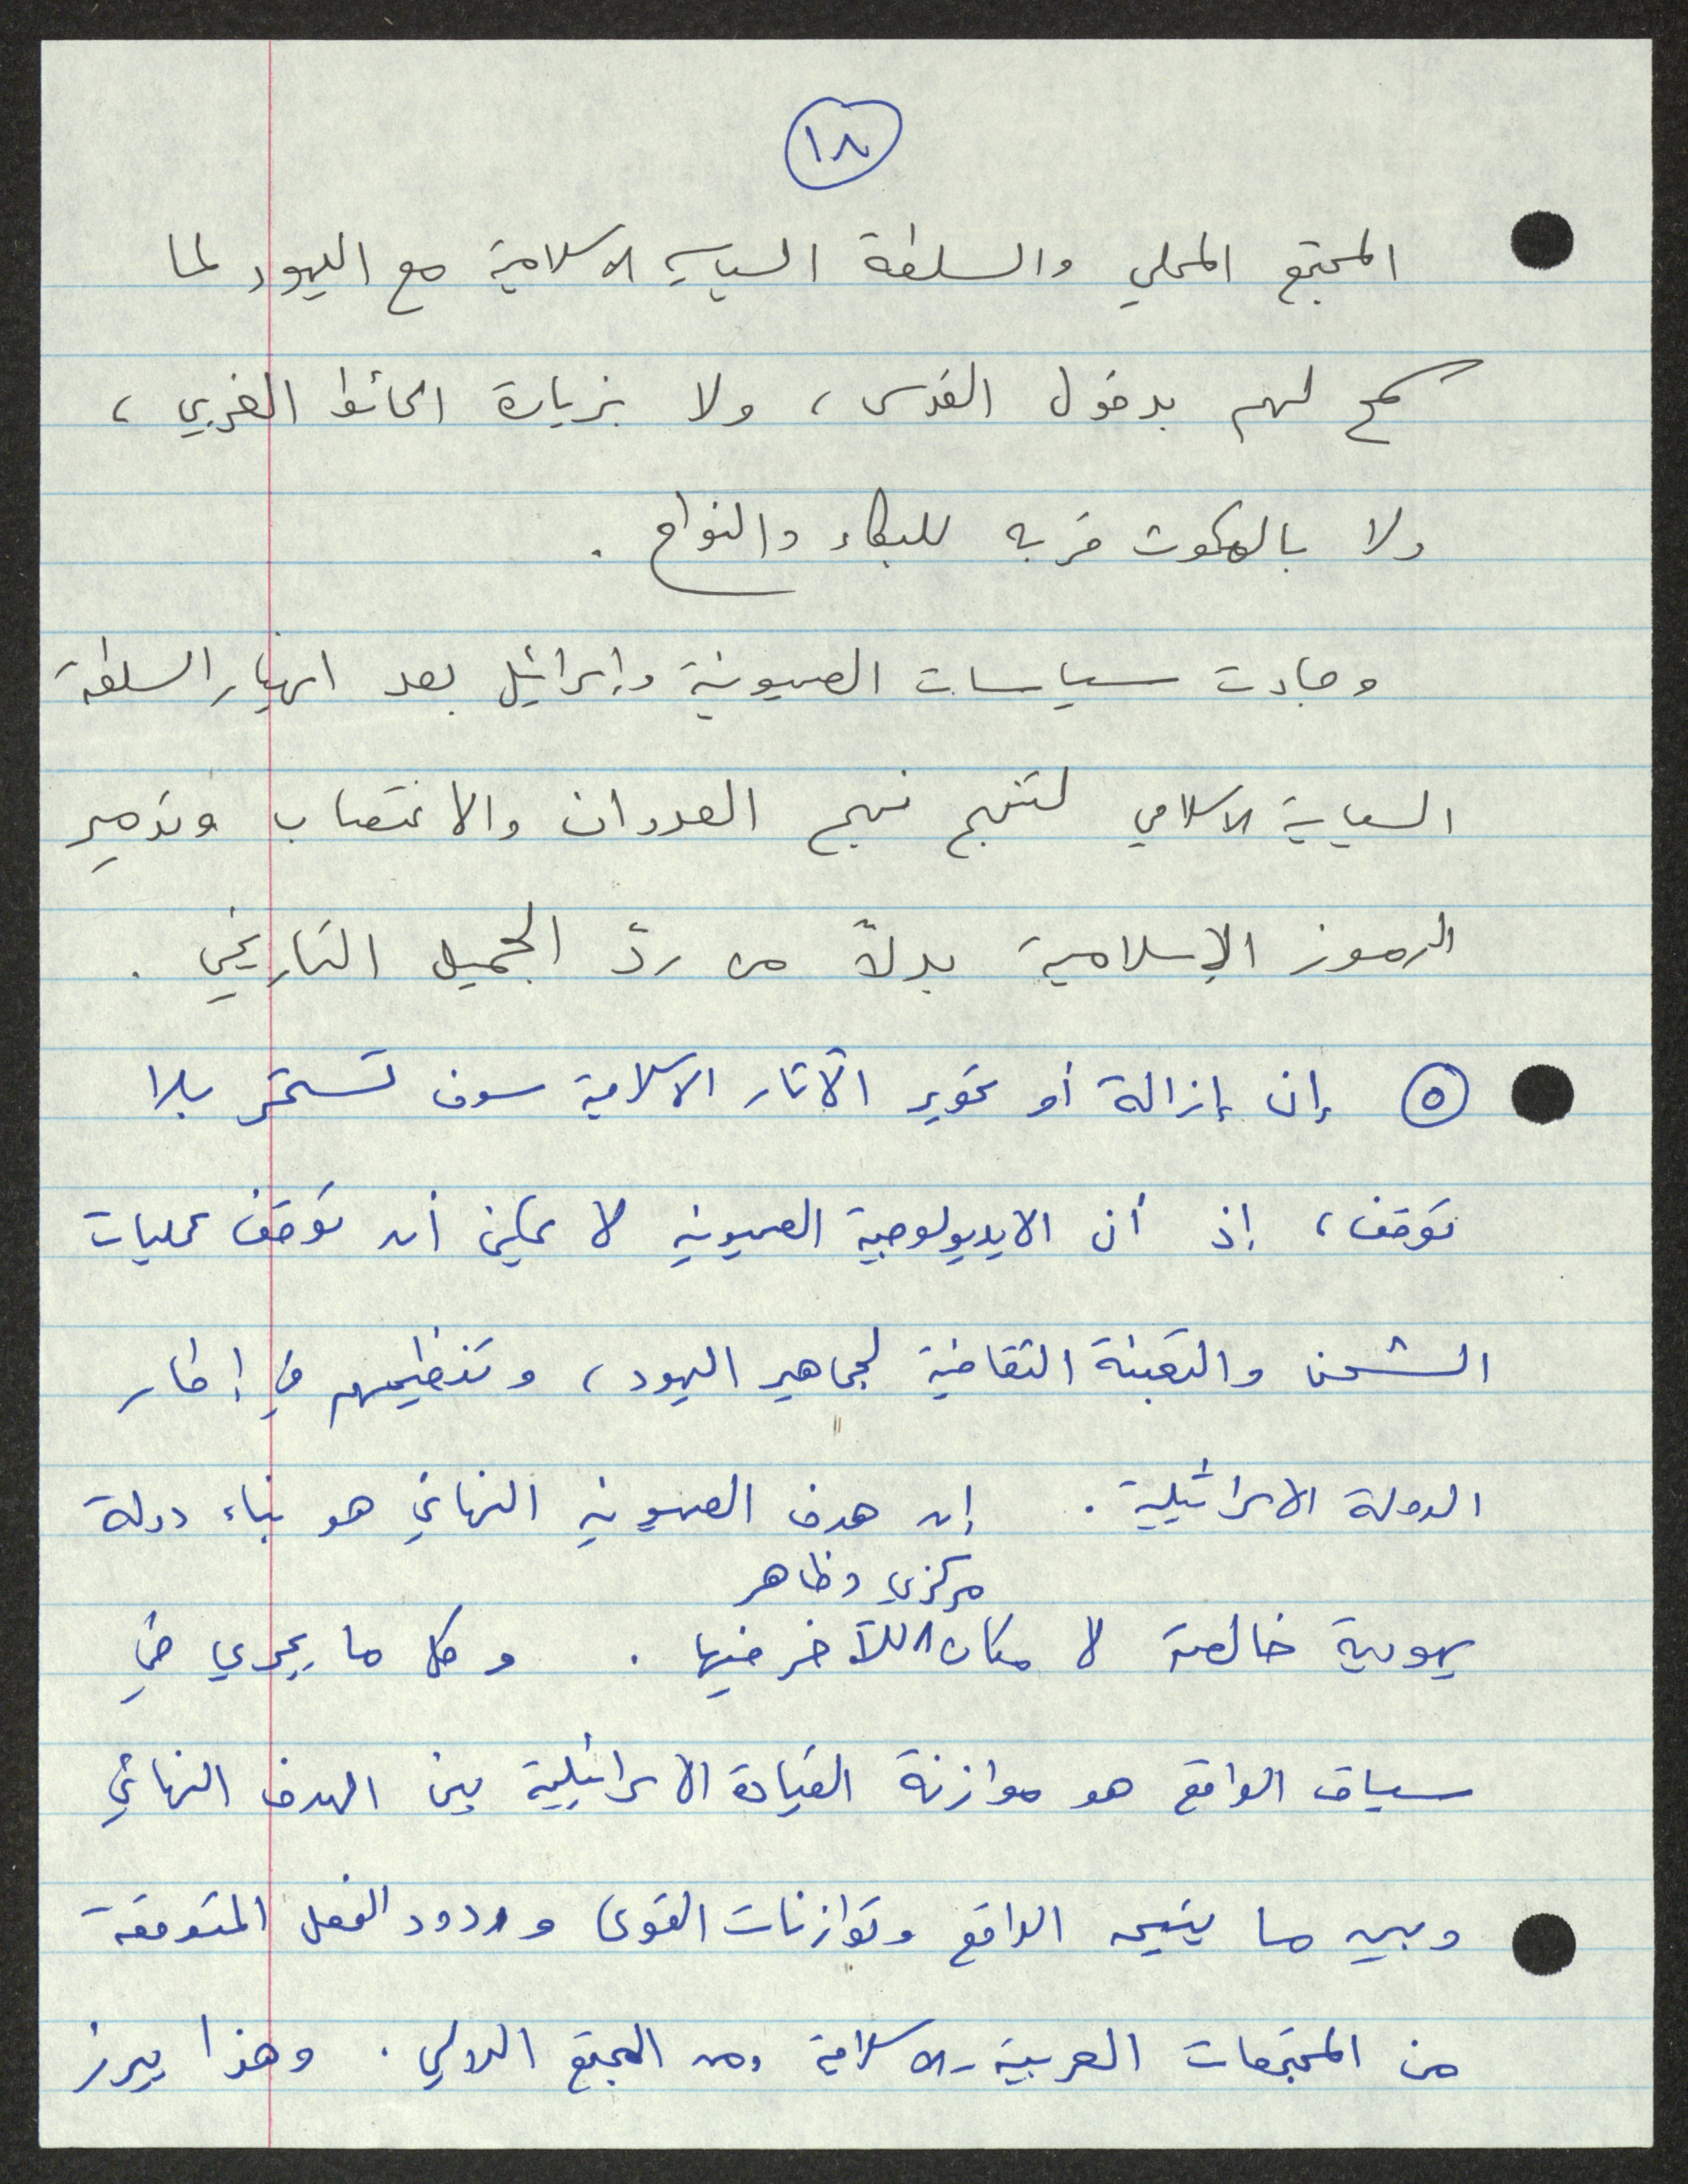 ١٨
المجتمع المحلي والسلطة السياسية الاسلامية مع اليهود لما
سمح لهم بدخول القدس، ولا بزيارة الحائط الغربي،
ولا بالمكوث قربه للبكاء والنواح.
وجاءت سياسات الصهيونية وإسرائيل بعد انهيار السلطة
السياسية الاسلامي لتنهج نهج العدوان والاغتصاب وتدمير
الرموز الإسلامية بدلاً من ردّ الجميل التاريخي.
٥ إن إزالة أو تحوير الآثار الاسلامية سوف تستمر بلا
توقف، إذ أن الايديولوجية الصهيونية لا يمكن أن توقف عمليات
الشحن والتعبئة الثقافية لجماهير اليهود، وتنظيمهم في إطار
الدولة الاسرائيلية. إن هدف الصهيونية النهائي هو بناء دولة
مركزي وظاهر
يهودية خالصة لا مكان للآخر فيها. وكل ما يجري في
سياق الواقع هو موازنة القيادة الاسرائيلية بين الهدف النهائي
وبين ما يتيحه الواقع وتوازنات القوى وردود الفعل المتوقعة
من المجتمعات العربية-الاسلامية ومن المجتمع الدولي. وهذا يبرز